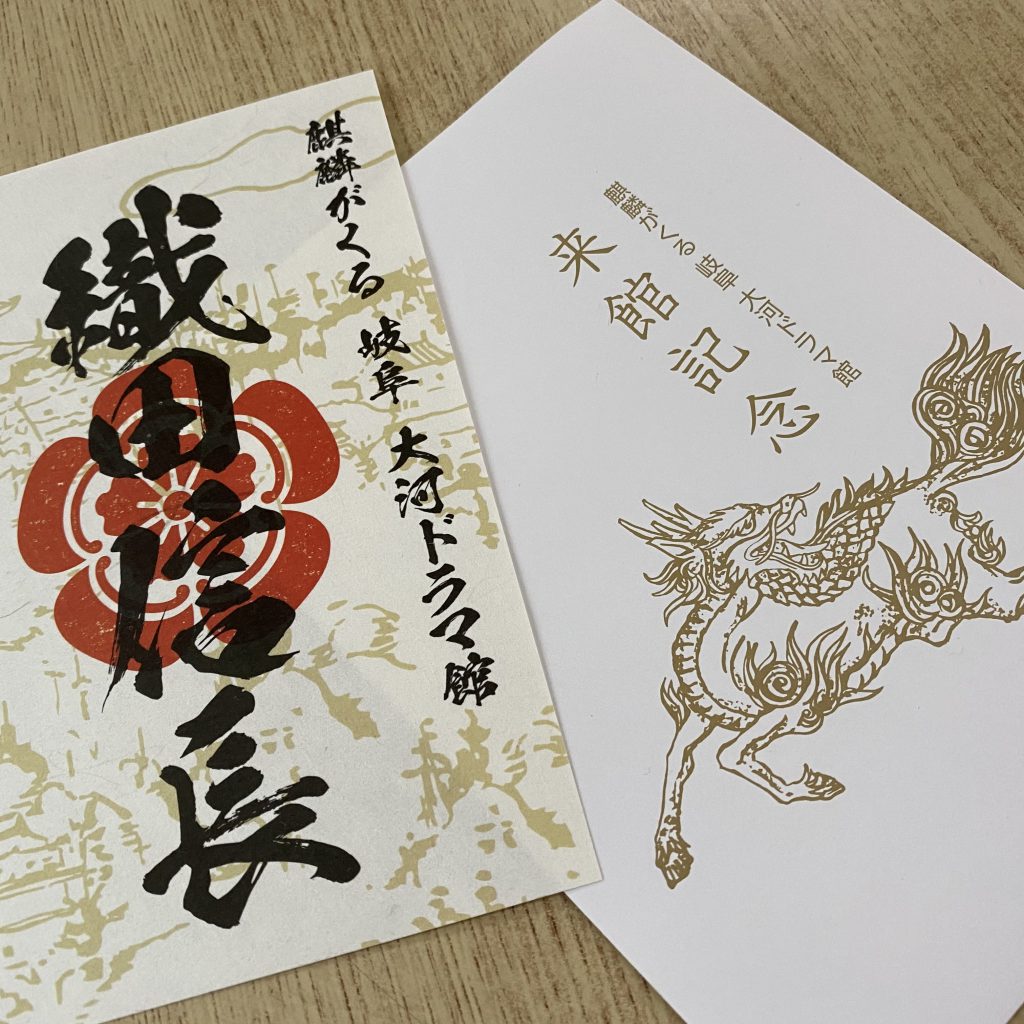 麒麟がくる 岐阜 大河ドラマ館
織田信長
麒麟がくる 岐阜 大河ドラマ館
来館記念